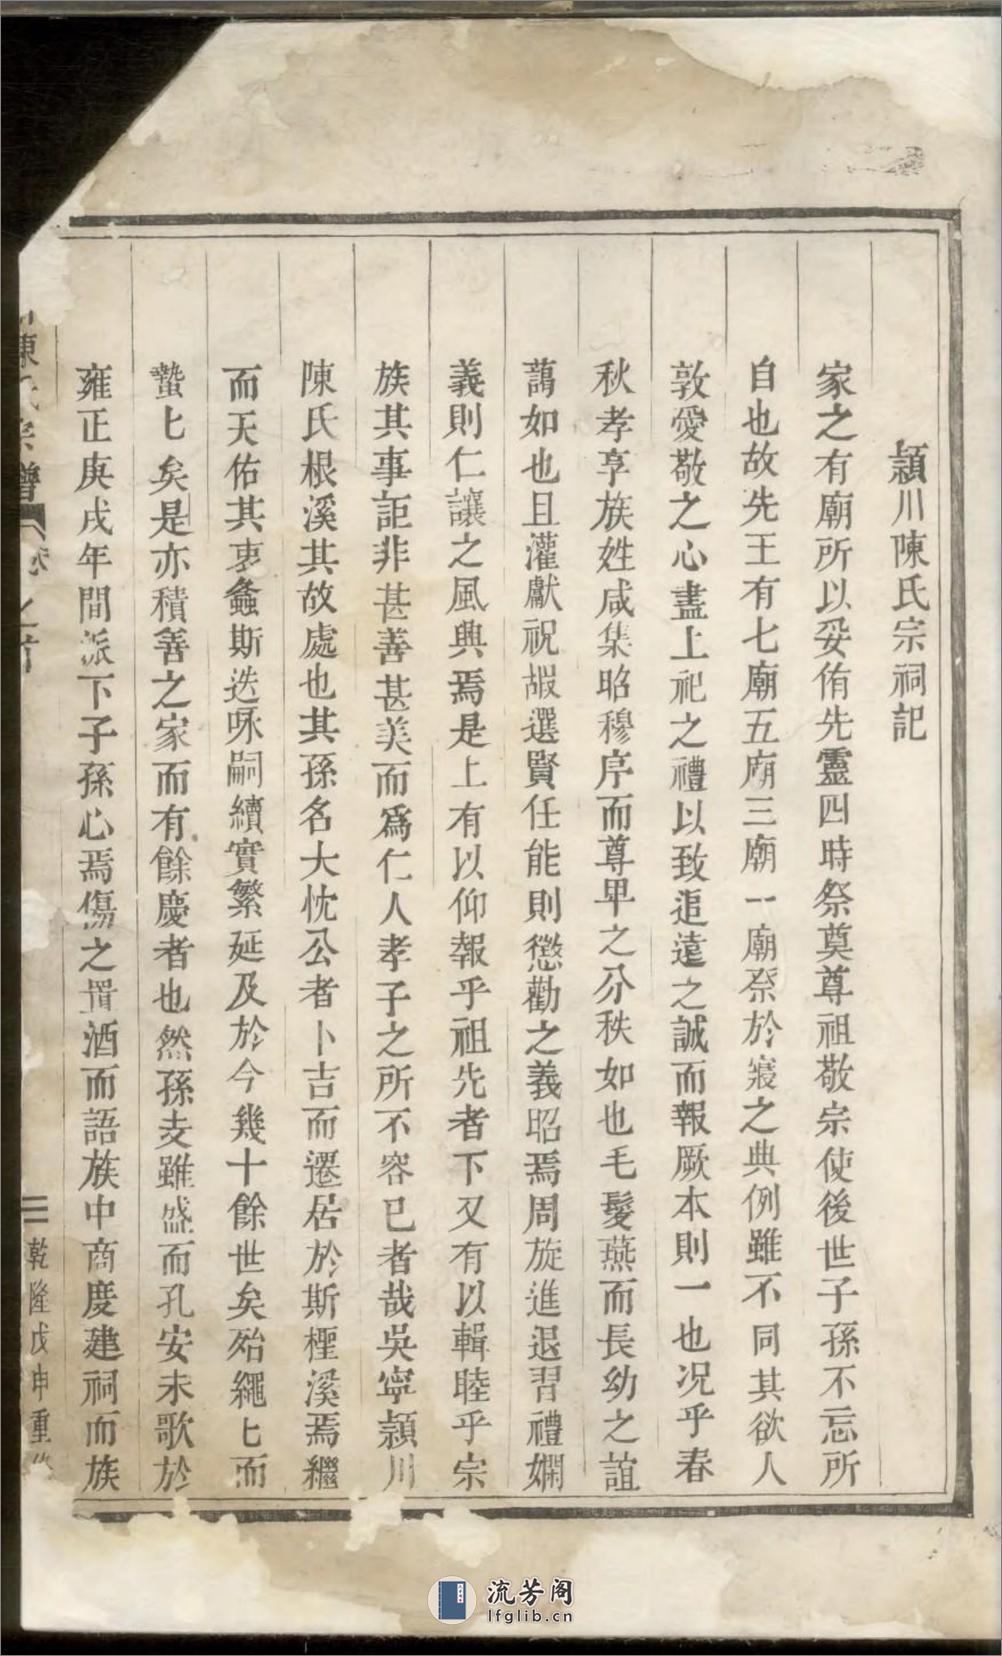 潁川陳氏宗祠記
家之有廟所以妥侑先靈四時祭奠尊祖敬宗使後世子孫不忘所
自也故先王有七廟五廟三廟一廟祭於寢之典例雖不同其欲人
敦愛敬之心盡上祀之禮以致追遠之誠而報厥本則一也况乎春
秋孝享族姓咸集昭穆序而尊卑之分秩如也毛髮燕而長幼之誼
藹如也且灌獻祝嘏選賢任能則懲勸之義昭焉周旋進退習禮嫻
義則仁讓之風興焉是上有以仰報乎祖先者下又有以輯睦乎宗
族其事詎非甚善甚美而為仁人孝子之所不容已者哉吳寧潁川
陳氏根溪其故處也其孫名大忱公者卜吉而遷居於斯檉溪焉繼
而天佑其衷螽斯迭咏嗣續實繁延及於今幾十餘世矣殆繩匕而
蟄匕矣是亦積善之家而有餘慶者也然孫支雖盛而孔安未歌於
雍正庚戌年間派下子孫心焉傷之置酒而語族中商度建祠而族
陳氏宗譜 卷之首 三 乾隆戊申重修
流芳阁
lfglib.cn